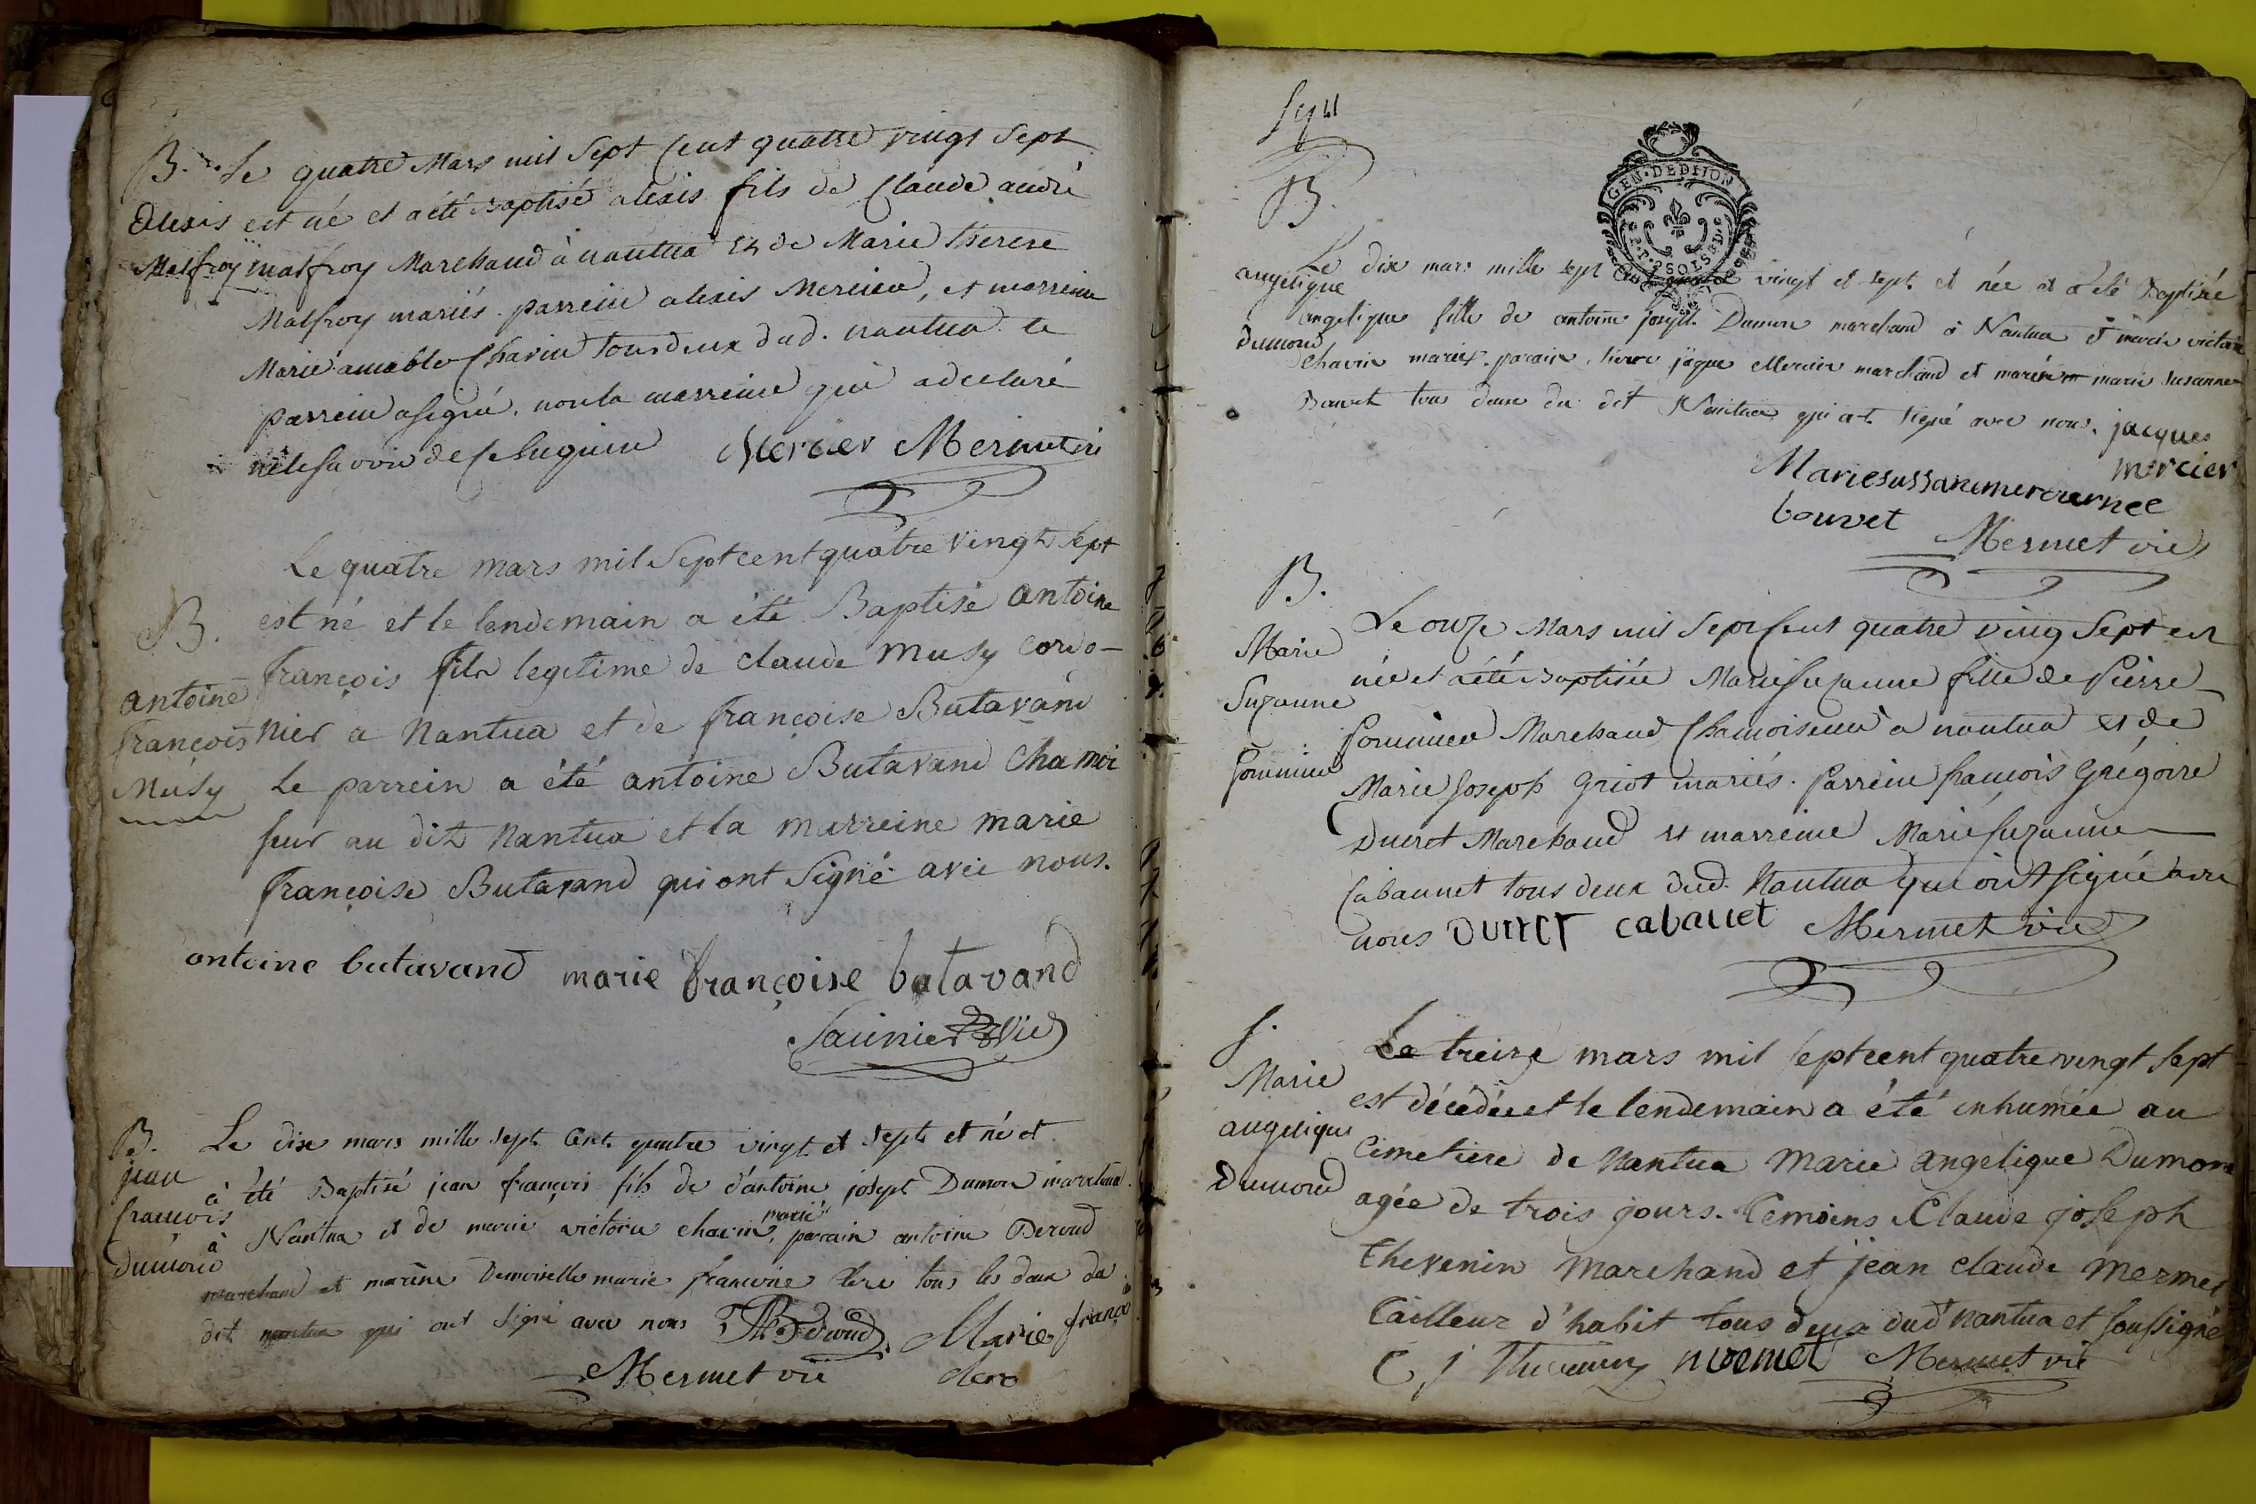 B. Le quatre Mars mil Sept Cent quatre vingt Sept
alexis est né et a été Baptisé alexis fils de Claude andré
Malfroy malfroy Marchand à nantua et de Marie therese
Malfroy mariés. parrein alexis Mercier, et marreine
Marie amable Chavin tous deux dud. nantua. le
parrein a signé, non la marreine qui a declaré
ne le savoir de ce
Mercier Mermet vic
Le quatre mars mil Sept cent quatre vingt Sept
B. est né et le lendemain a été Baptisé antoine
françois fils legitime de claude Musy cordo-
antoine
françois nier a Nantua et de françoise Butavand
Musy Le parrein a été antoine Butavand chamoi
seur au dit Nantua et la marreine marie
françoise Butavand qui ont Signé avec nous.
antoine butavand marie françoise butavand
Saunier vic
B. Le dix mars mille sept Cent quatre vingt et sept et né et
jean a été Baptisé jean françois fils de d'antoine joseph Dumon marchand
françois à Nantua et de marie victoire chavin mariés, parrain antoine Deroud
Dumond
marchand et marène Demoiselle marie francoise clerc tous les deux du
dit nantua qui ont Signé avec nous Deroud Marie franço
Mermet vic clerc
B.
GEN. DE DIJON
2 SOLS
Le dix mars mille sept cent quatre vingt et sept et née et a été Baptisée
angelique
angelique fille de antoine joseph Dumon marchand à Nantua et marie victoire
Dumond
chavin mariés. parain jaque Mercier marchand et marène marie susanne
Bouvet tous deux du dit Nantua qui ont signé avec nous. jacques
mercier
Marie sussane mercier nee
bouvet Mermet vic
B.
Le onze Mars mil Sept Cent quatre ving Sept est
Marie née et a été Baptisée Marie Suzanne fille de Pierre
Suzanne
Marchand Chamoiseur a nantua et de
Marie Joseph Griot mariés. Parrein françois Grégoire
Ducret Marchand et marreine Marie Suzanne
Cabannet tous deux dud. Nantua qui ont signé avec
nous Ducret cabanet Mermet vic
Le treize mars mil Sept cent quatre vingt Sept
Marie est décédée et le lendemain a été inhumée au
angelique Cimetiere de Nantua Marie angelique Dumon
Dumond agée de trois jours. Temoins Claude joseph
Thevenin Marchand et jean claude Mermet
Tailleur d'habit tous deux dud Nantua et soussignés
C j Thevenin mermet Mermet vic